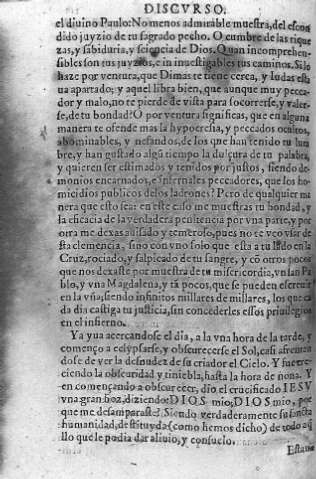 DISCVRSO.
el diuino Paulo: No menos admirable muestra, del escon
dido juyzio de tu sagrado pecho. O cumbre de las rique
zas, y sabiduria, y sciencia de Dios. Quan incomprehen-
sibles son tus juyzios, e inuestigables tus caminos. Si lo
haze por ventura, que Dimas te tiene cerca, y Iudas esta
ua apartado; y aquel libra bien, que aunque muy pecca-
dor y malo, no te pierde de vista para socorrerse, y valer-
se, de tu bondad? O por ventura significas, que en alguna
manera te ofende mas la hypocresia, y peccados ocultos,
abominables, y nefandos, de los que han tenido tu lum
bre, y han gustado algũ tiempo la dulçura de tu palabra,
y quieren ser estimados y tenidos por justos, siendo de-
monios encarnados, e infernales peccadores, que los ho-
micidios publicos de los ladrones? Pero de qualquier ma
nera que esto sea: en este caso me muestras tu bondad, y
la eficacia de la verdadera penitencia por vna parte, y por
otra me dexas auisado y temeroso, pues no te veo vsar de
sta clemencia, sino con vno solo que esta a tu lado en la
Cruz, rociado, y salpicado de tu sangre, y cõ otros pocos
que nos dexaste por muestra de tu misericordia, vn san Pa
blo, y vna Magdalena, y tã pocos, que se pueden escreuir
en la vña, siendo infinitos millares de millares, los que ca
da dia castiga tu justicia, sin concederles essos priuilegios
en el infierno.
Ya yua acercandose el dia, a la vna hora de la tarde, y
començo a eclypsarse, y obscurecerse el Sol, casi afrentan
dose de ver la desnudez de su criador el Cielo. Y fue cre-
ciendo la obscuridad y tiniebla, hasta la hora de nona. Y
en començando a obscurecer, dio el crucificado IESV
vna gran boz, diziendo: DIOS mio, DIOS mio, por
que me desamparaste? Siendo verdaderamente su sancta
humanidad, destituyda (como hemos dicho) de todo aq̃
llo que le podia dar aliuio, y consuelo.